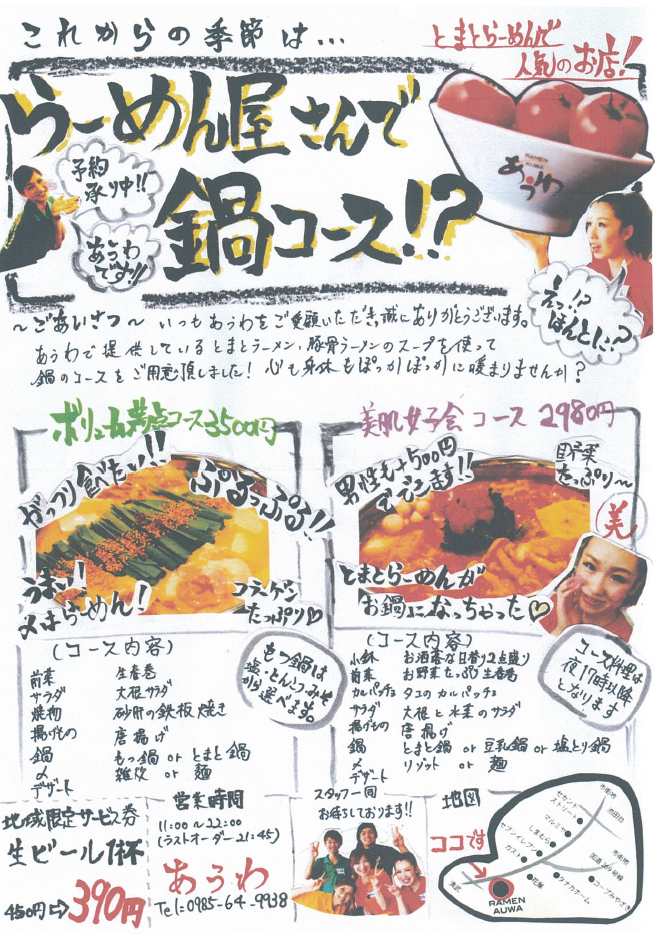 これからの季節は...
とまとらーめんで
人気のお店!
らーめん屋さんで
鍋コース!?
予約
承り中!!
あうわ
です!!
RAMEN
AUWA
あうわ
えっ!?
ほんとに?
～ごあいさつ～ いつもあうわをご愛顧いただき、誠にありがとうございます。
あうわで提供しているとまとラーメン、豚骨ラーメンのスープを使って
鍋のコースをご用意頂しました! 心も身体もぽっかぽっかに暖まりませんか?
ボリューム満点コース3500円
がっつり食べたい!!
ぷるっぷる!!
うまい!
〆はらーめん!
コラーゲン
たっぷり♡
(コース内容)
前菜 生春巻
サラダ 大根サラダ
焼物 砂肝の鉄板焼き
揚げもの 唐揚げ
鍋 もつ鍋 or とまと鍋
〆 雑炊 or 麺
デザート
もつ鍋は
塩・とんこつ・みそ
から選べます。
美肌女子会コース 2980円
男性も+500円
でできます!!
野菜
たっぷり～
美
とまとらーめんが
お鍋になっちゃった♡
(コース内容)
小鉢 お洒落な日替り2点盛り
前菜 お野菜たっぷり生春巻
カルパッチョ タコのカルパッチョ
サラダ 大根と水菜のサラダ
揚げもの 唐揚げ
鍋 とまと鍋 or 豆乳鍋 or 塩とり鍋
〆 リゾット or 麺
デザート
コース料理は
夜17時以降
となります
地域限定サービス券
生ビール1杯
450円⇨390円
営業時間
11:00～22:00
(ラストオーダー21:45)
あうわ
Tel:0985-64-9938
スタッフ一同
お待ちしております!!
地図
ココです
セカンド
ストリート
マルミヤ
しまむら
セブンイレブン
ガスト
花亀
タナカホーム
コープみやざき
国道269号線
市街地
池田台
市街地
清武
RAMEN
AUWA